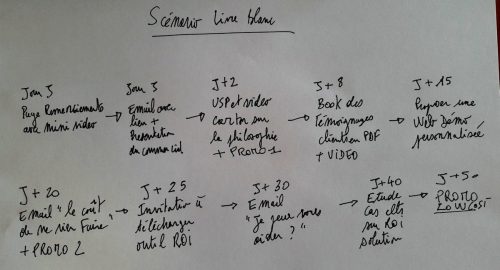 Scénario Livre blanc
Jour J
Page Remerciements
avec mini video
Jour J
Email avec
lien +
Présentation
du commercial
J+2
USP et video
carton sur
la philosophie
+ PROMO 1
J+8
Book des
Témoignages
clients en PDF
+ VIDEO
J+15
Proposer une
Web Démo
personnalisée
J+20
Email "le coût
de ne rien faire"
+ PROMO 2
J+25
Invitation à
télécharger
outil ROI
J+30
Email
"Je peux vous
aider ?"
J+40
Etude
cas clts
sur ROI
solution
J+50
PROMO
LOW COST